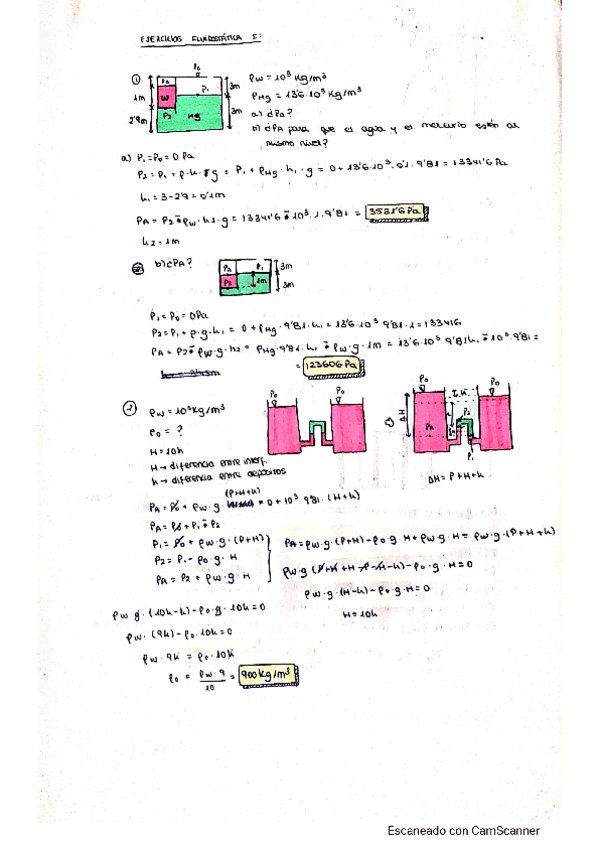 EJERCICIOS FLUIDOSTÁTICA I:
①
P0
PA
W
P1
Hg
P2
1m
2'9m
3m
3m
ρW = 10³ Kg/m³
ρHg = 13'6·10³ Kg/m³
a) ¿PA?
b) ¿PA para que el agua y el mercurio estén al
mismo nivel?
a) P1 = P0 = 0 Pa
P2 = P1 + ρ·h·g = P1 + ρHg·h1·g = 0 + 13'6·10³·0'1·9'81 = 13341'6 Pa
h1 = 3-2'9 = 0'1m
PA = P2 - ρW·h2·g = 13341'6 - 10³·1·9'81 = 3531'6 Pa
h2 = 1m
b) ¿PA?
P2
P1
P2
1m
3m
3m
P1 = P0 = 0Pa
P2 = P1 + ρ·g·h1 = 0 + ρHg·9'81·h1 = 13'6·10³·9'81·1 = 133416
PA = P2 - ρW·g·h2 = ρHg·9'81·h1 - ρW·g·1m = 13'6·10³·9'81h1 - 10³·9'81 =
= 123606 Pa
②
ρW = 10³Kg/m³
ρ0 = ?
H = 10h
H → diferencia entre interf.
h → diferencia entre depósitos
P0
P0
P0
P0
ΔH
PA
P2
P1
ΔH = P+H+h
(P+H+h)
PA = P0 + ρW·g· = 0 + 10³·9'81·(H+h)
PA = P0 + P1 - P2
P1 = P0 + ρW·g·(P+H)
P2 = P1 - ρ0·g·H
PA = P2 + ρW·g·H
PA = ρW·g·(P+H) - ρ0·g·H + ρW·g·H = ρW·g·(P+H+h)
ρW·g(P+H+H-P-H-h) - ρ0·g·H = 0
ρW·g·(H-h) - ρ0·g·H = 0
H = 10h
ρW·g·(10h-h) - ρ0·g·10h = 0
ρW·(9h) - ρ0·10h = 0
ρW·9h = ρ0·10h
ρ0 = ρW·9 / 10 = 900kg/m³
Escaneado con CamScanner